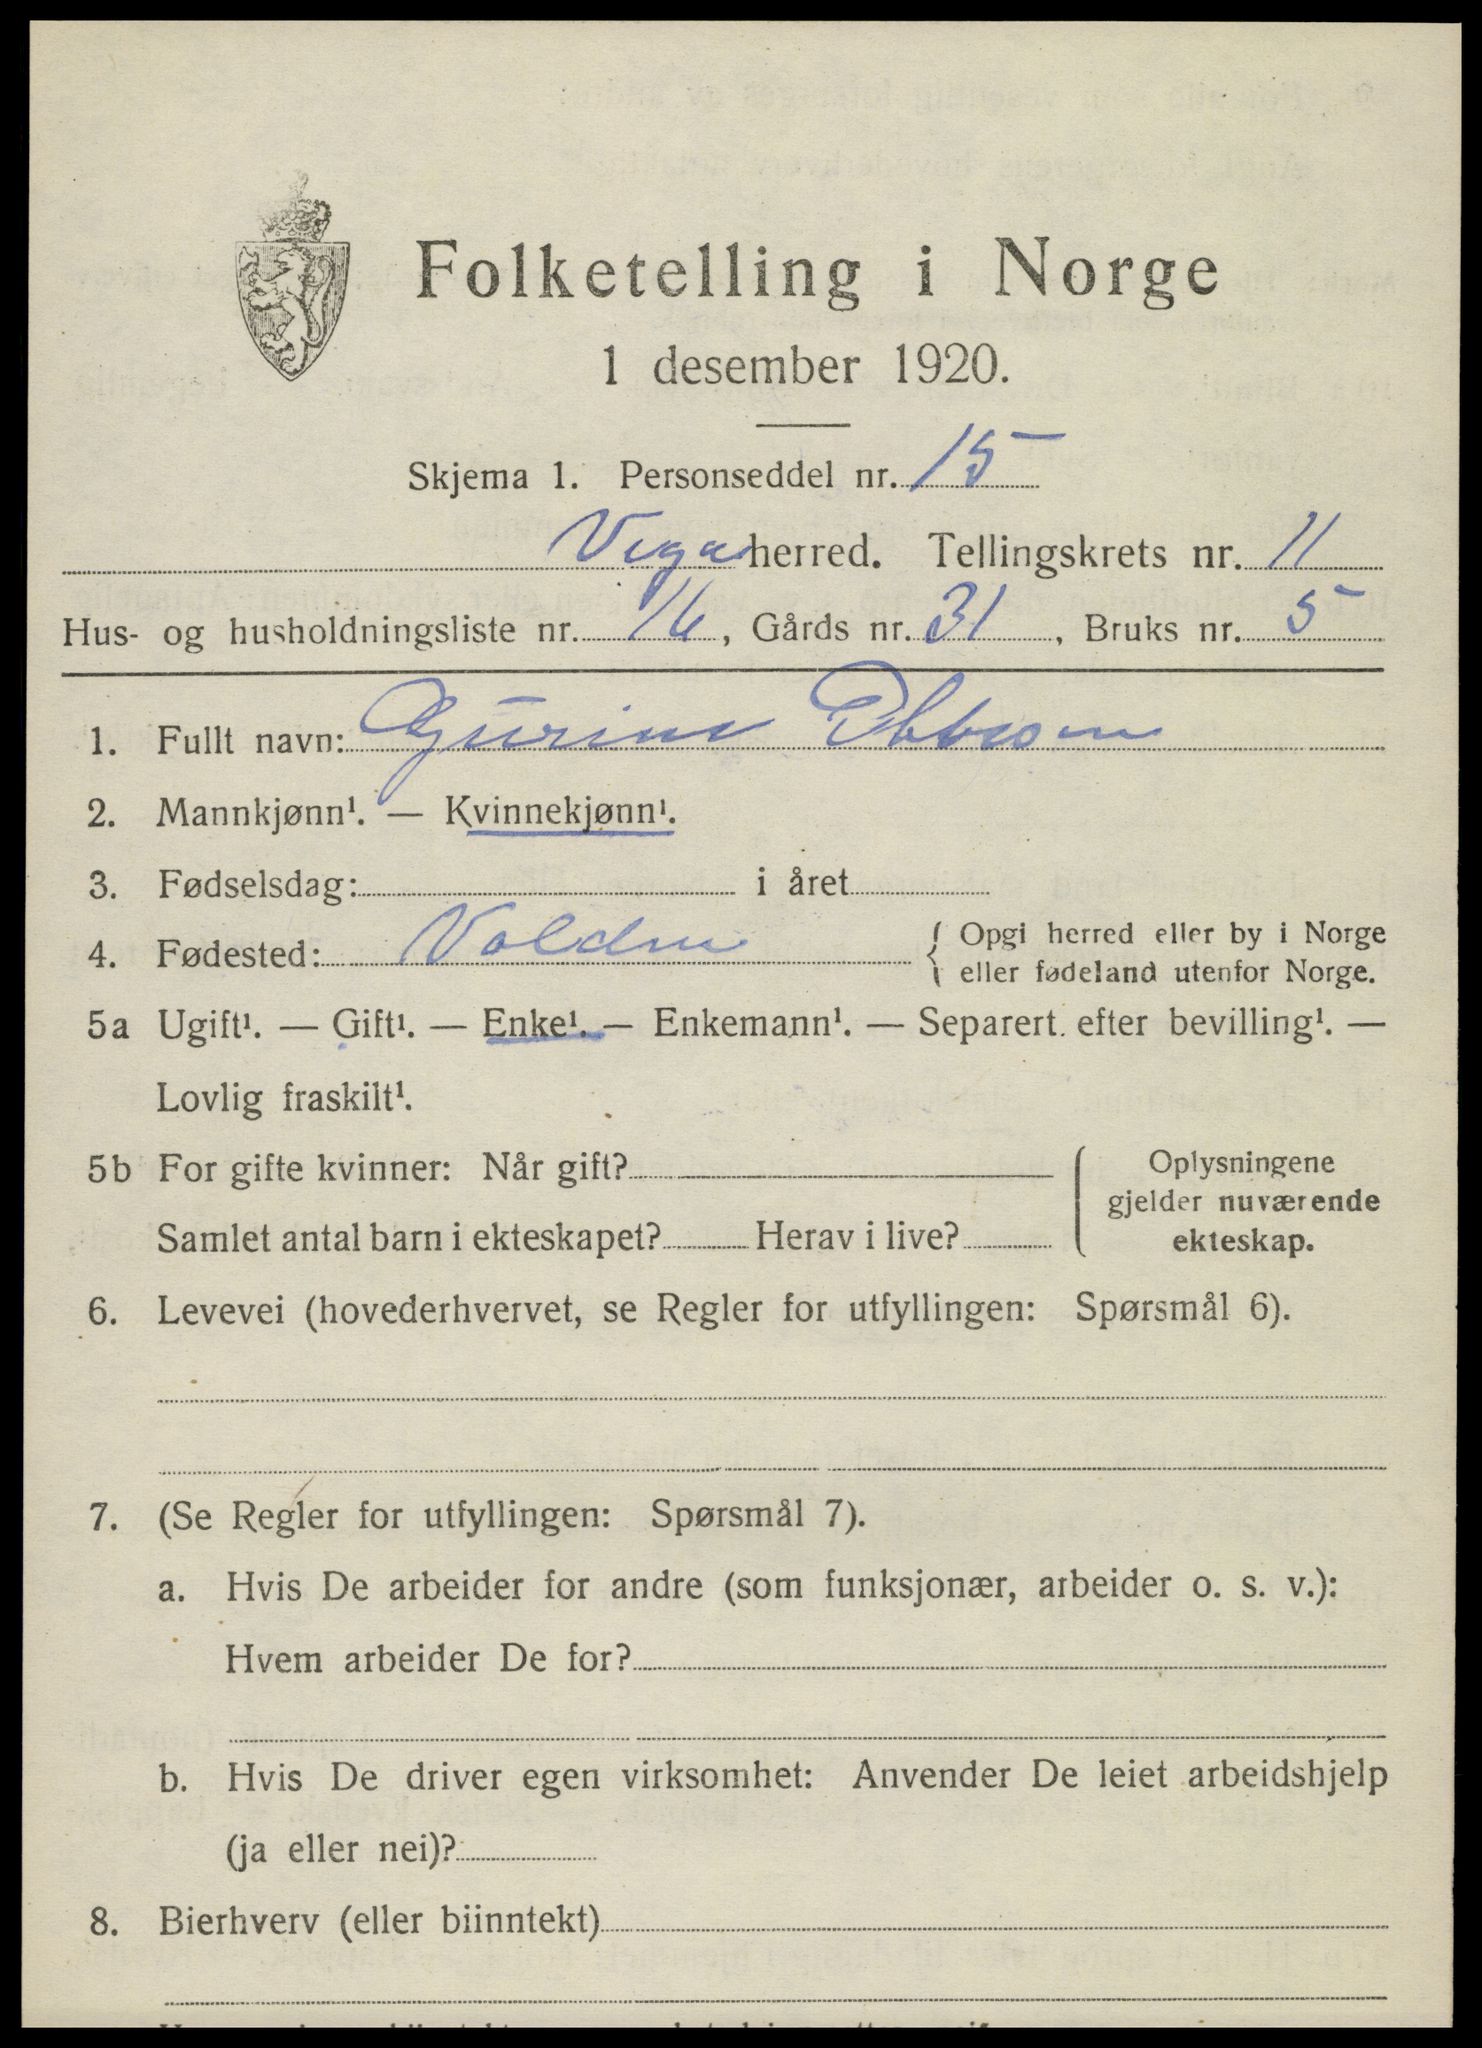 Folketelling i Norge
1 desember 1920.
Skjema 1. Personseddel nr. 15
Vega herred. Tellingskrets nr. 11
Hus- og husholdningsliste nr. 16, Gårds nr. 31, Bruks nr. 5
1. Fullt navn: Gurine
2. Mannkjønn¹. — Kvinnekjønn¹.
3. Fødselsdag: i året
4. Fødested: { Opgi herred eller by i Norge
eller fødeland utenfor Norge.
5a Ugift¹. — Gift¹. — Enke¹. — Enkemann¹. — Separert efter bevilling¹. —
Lovlig fraskilt¹.
5b For gifte kvinner: Når gift?
Samlet antal barn i ekteskapet? Herav i live?
Oplysningene
gjelder nuværende
ekteskap.
6. Levevei (hovederhvervet, se Regler for utfyllingen: Spørsmål 6).
7. (Se Regler for utfyllingen: Spørsmål 7).
a. Hvis De arbeider for andre (som funksjonær, arbeider o. s. v.):
Hvem arbeider De for?
b. Hvis De driver egen virksomhet: Anvender De leiet arbeidshjelp
(ja eller nei)?
8. Bierhverv (eller biinntekt)